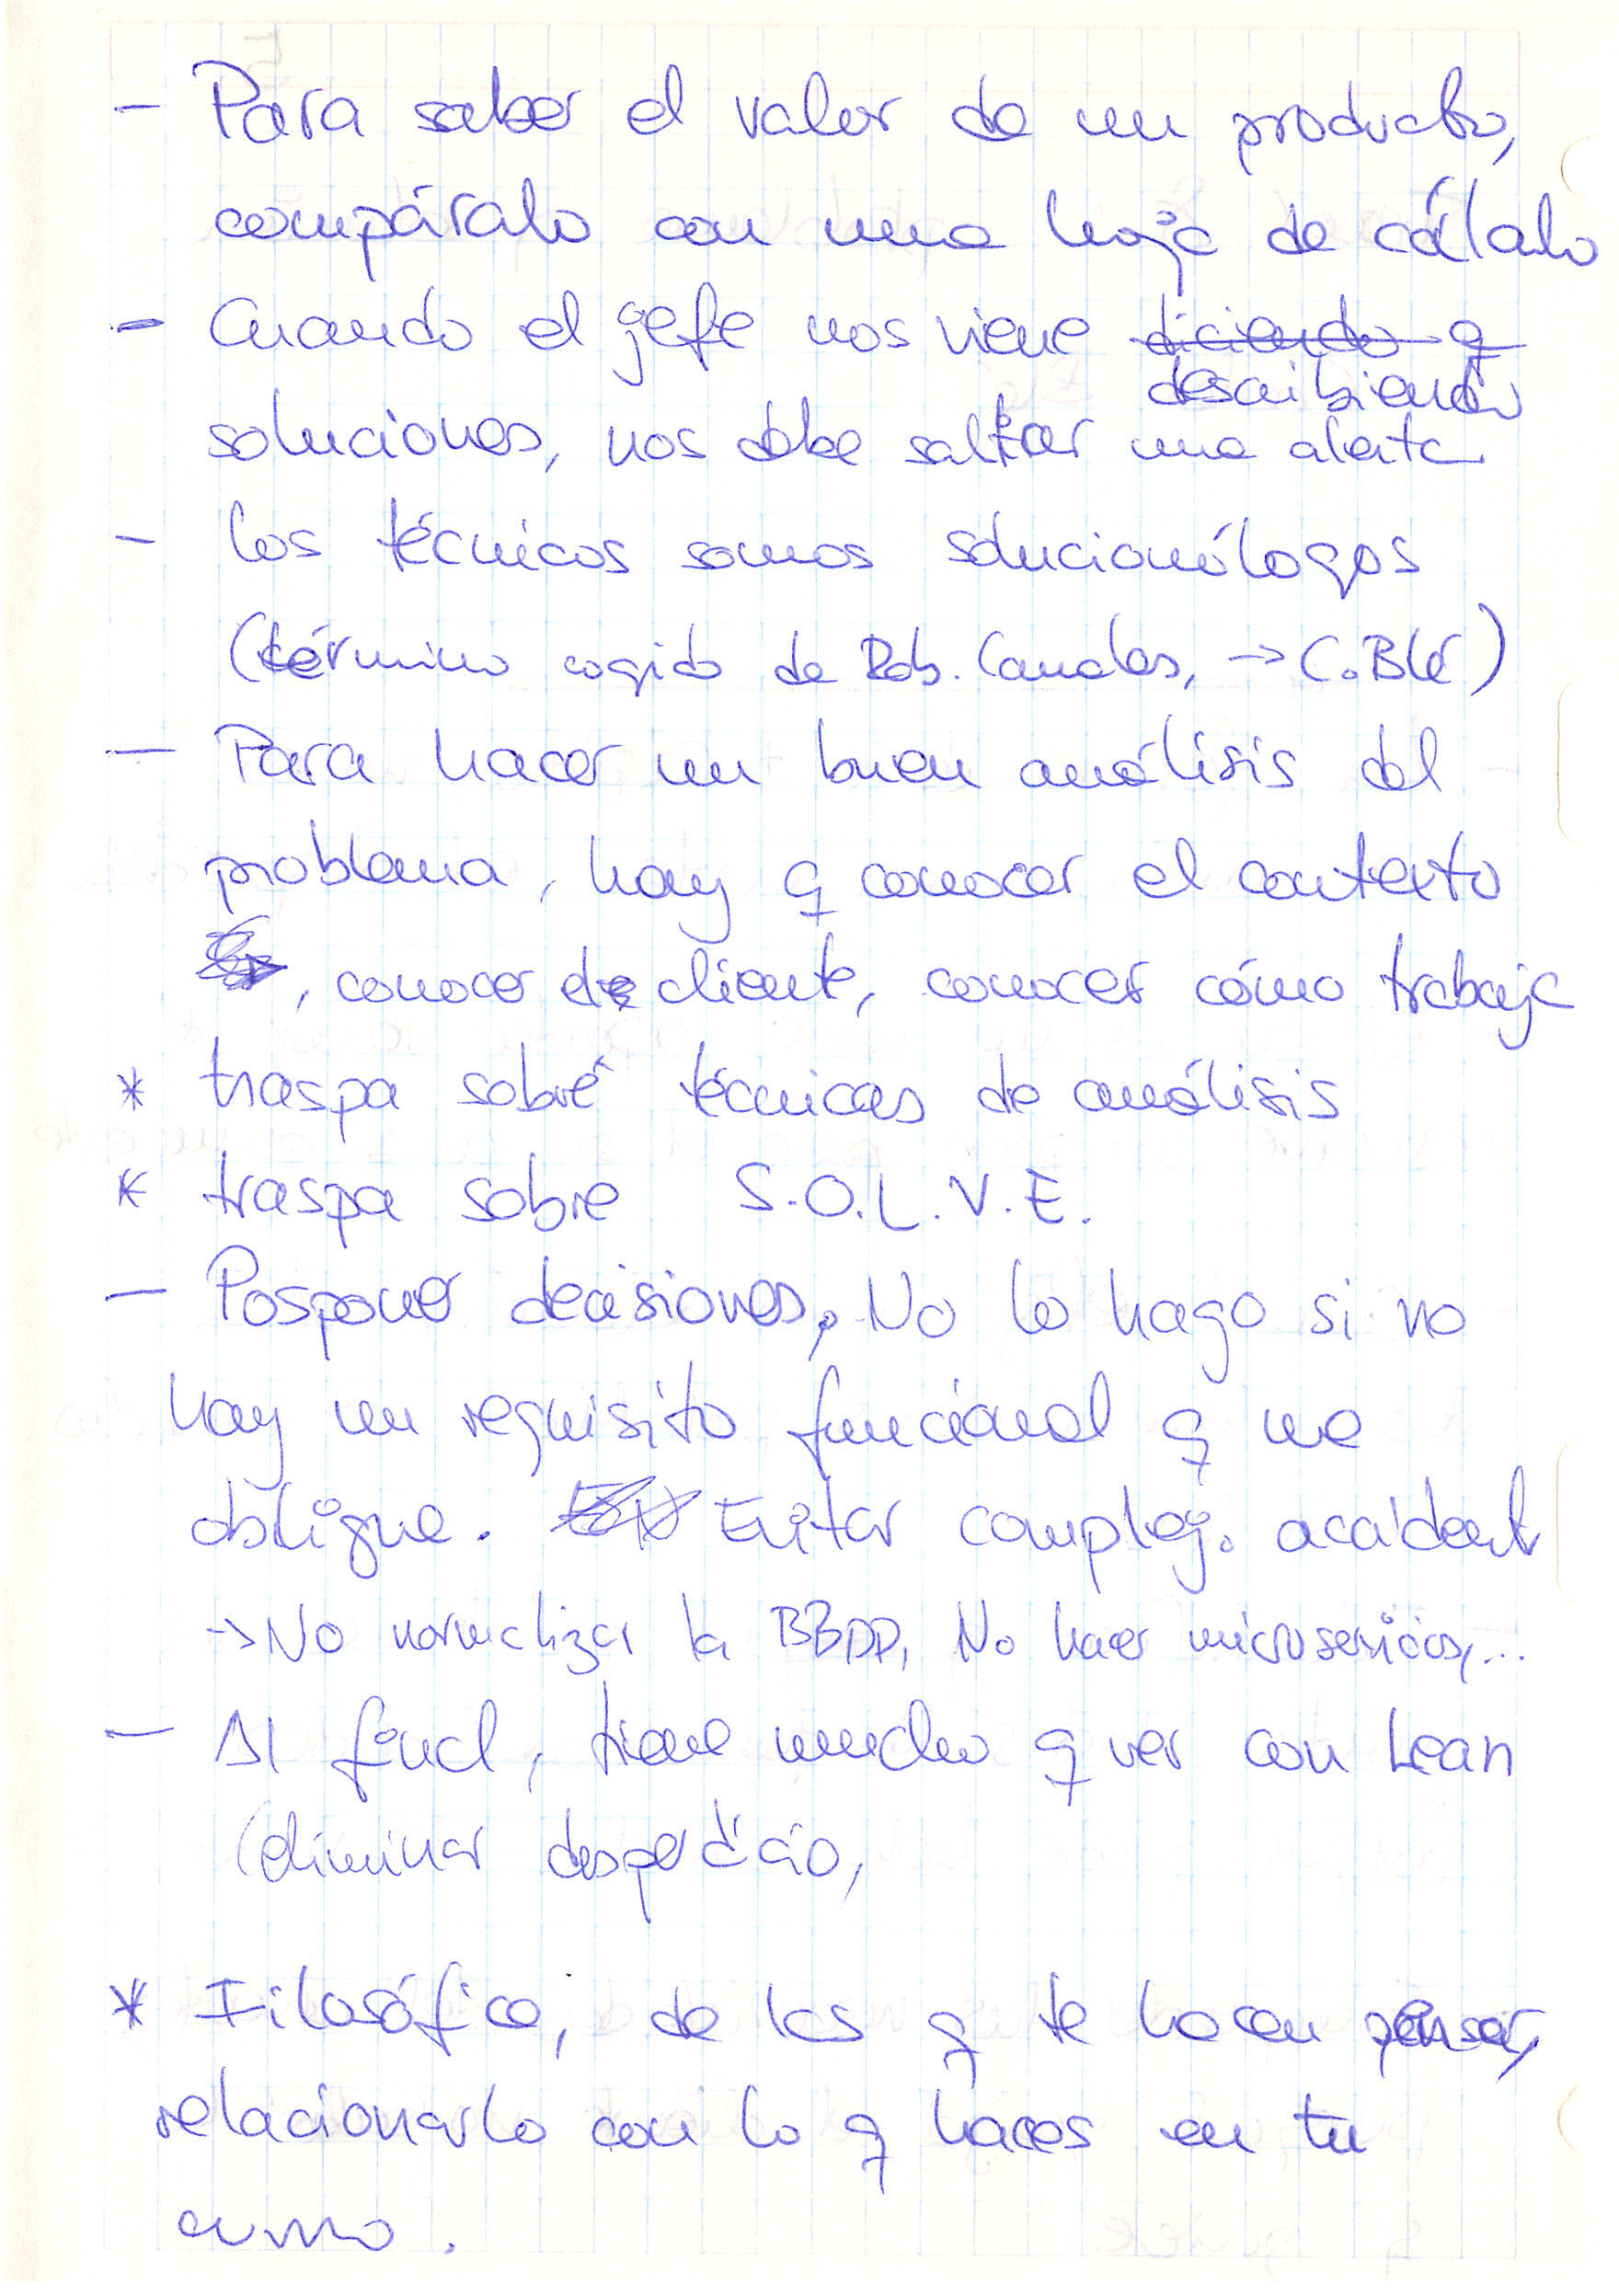 - Para saber el valor de un producto,
compáralo con una hoja de cálculo
- Cuando el jefe nos viene diciendo q
describiendo
soluciones, nos debe saltar una alerta
- Los técnicos somos solucionólogos
(término cogido de Rob. Canales, → C. Blé)
- Para hacer un buen análisis del
problema, hay q conocer el contexto
, conocer cliente, conocer cómo trabaja
* traspa sobre técnicas de análisis
* traspa sobre S.O.L.V.E.
- Posponer decisiones. No lo hago si no
hay un requisito funcional q me
obligue. Evitar complej. accident
→ No normalizar la BBDD, No hacer microservicios,...
- Al final, tiene mucho q ver con Lean
(eliminar desperdicio,
* Filosófica, de las q te hacen pensar,
relacionarlo con lo q haces en tu
.